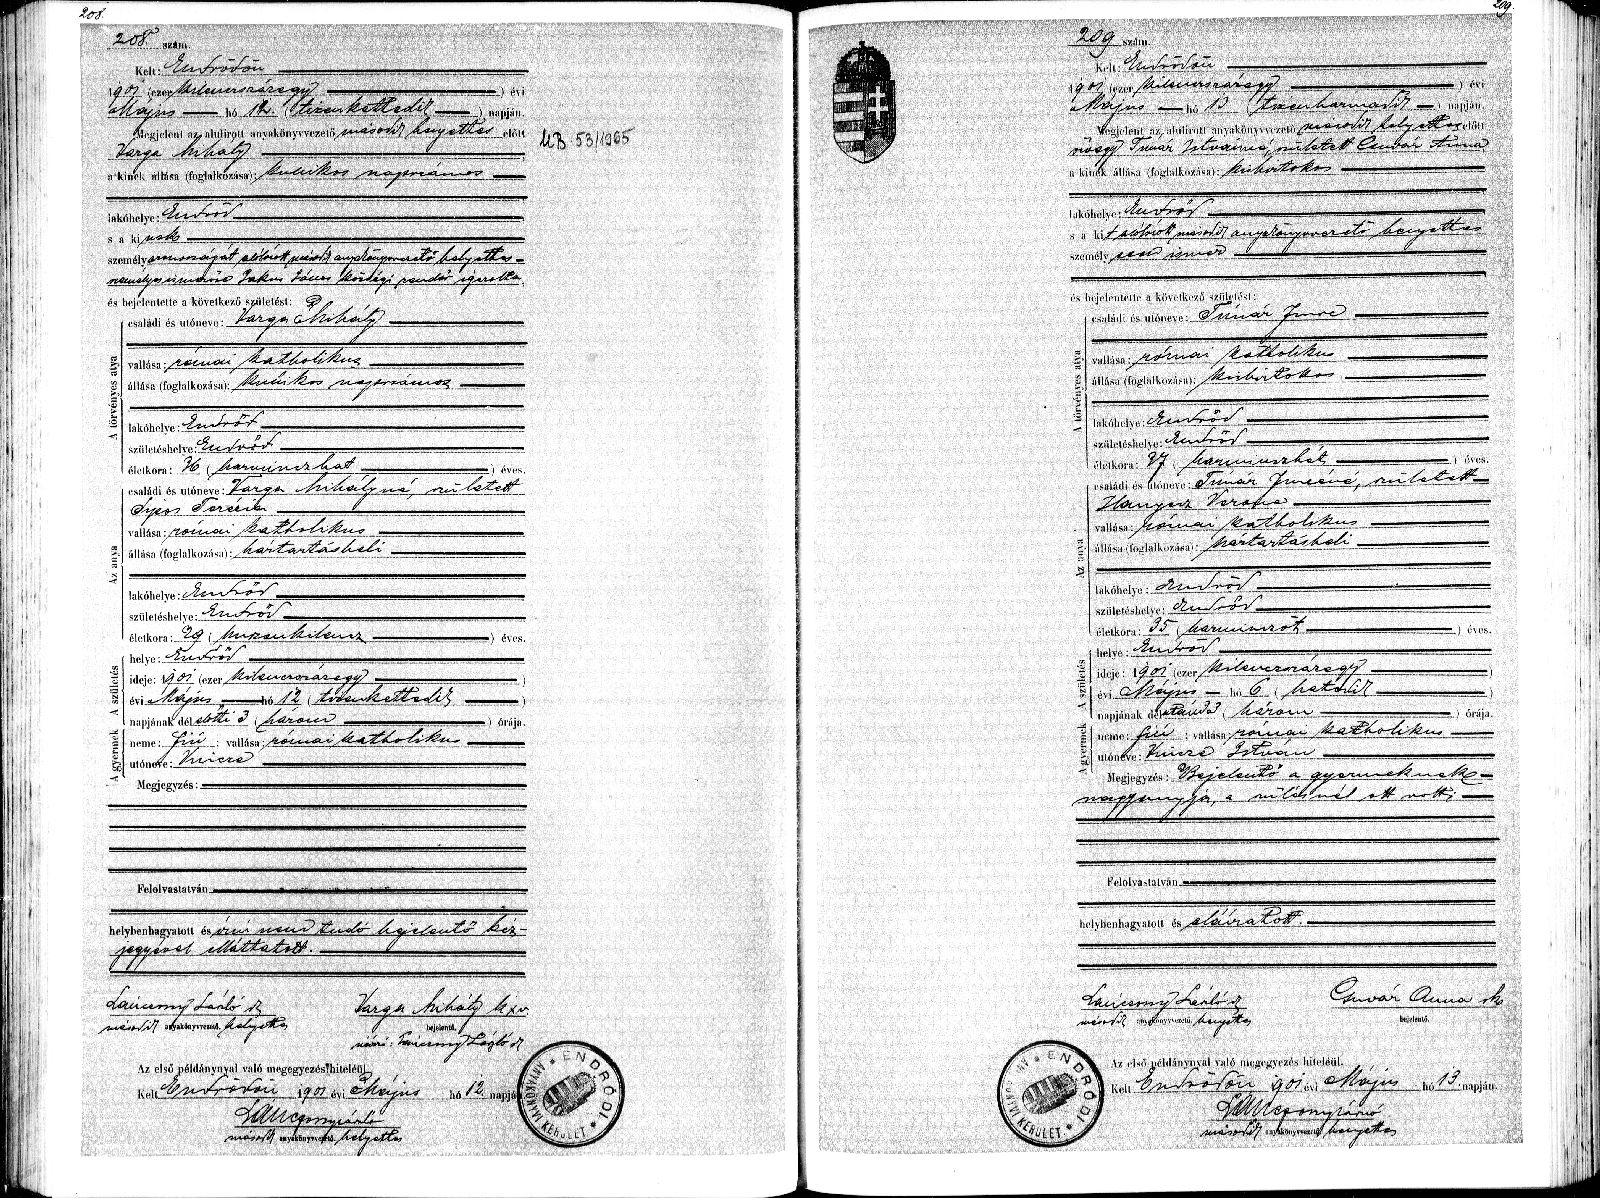 208.
208. szám.
Kelt: Endrődön
1901 (ezer kilenczszázegy) évi
Május hó 12. (tizenkettedik) napján.
Megjelent az alulirott anyakönyvvezető második helyettes előtt
Varga Mihály
a kinek állása (foglalkozása): kubikos napszámos
lakóhelye: Endrőd
s a kinek
személyazonosságát alólirott második anyakönyvvezető helyettes
János községi rendőr igazolta,
és bejelentette a következő születést:
A törvényes atya
családi és utóneve: Varga Mihály
vallása: római katholikus
állása (foglalkozása): kubikos napszámos
lakóhelye: Endrőd
születéshelye: Endrőd
életkora: 36 (harminczhat) éves.
Az anya
családi és utóneve: Varga Mihályné, született
Teréz
vallása: római katholikus
állása (foglalkozása): háztartásbeli
lakóhelye: Endrőd
születéshelye: Endrőd
életkora: 29 (huszonkilencz) éves.
A születés
helye: Endrőd
ideje: 1901 (ezer kilenczszázegy)
évi Május hó 12 (tizenkettedik)
napjának dél előtti 3 (három) órája.
A gyermek
neme: fiú; vallása: római katholikus
utóneve: Vincze
Megjegyzés:
Felolvastatván
helybenhagyatott és írni nem tudó bejelentő kéz-
jegyével elláttatott.
László
második anyakönyvvezető helyettes
Varga Mihály k x v
bejelentő.
László
Az első példánynyal való megegyezés hiteléül.
Kelt Endrődön 1901 évi Május hó 12. napján
második anyakönyvvezető helyettes
ENDRŐDI ANYAKÖNYVI KERÜLET.
MB 53/1965
209.
209 szám.
Kelt: Endrődön
1901 (ezer kilenczszázegy) évi
Május hó 13 (tizenharmadik) napján.
Megjelent az alulirott anyakönyvvezető második helyettes előtt
Timár Istvánné, született Csuvár Anna
a kinek állása (foglalkozása): kisbirtokos
lakóhelye: Endrőd
s a kit alólirott második anyakönyvvezető helyettes
személyesen ismer
és bejelentette a következő születést:
A törvényes atya
családi és utóneve: Timár Imre
vallása: római katholikus
állása (foglalkozása): kisbirtokos
lakóhelye: Endrőd
születéshelye: Endrőd
életkora: 37 (harminczhét) éves.
Az anya
családi és utóneve: Timár Imréné, született
Hanyecz Verona
vallása: római katholikus
állása (foglalkozása): háztartásbeli
lakóhelye: Endrőd
születéshelye: Endrőd
életkora: 35 (harminczöt) éves.
A születés
helye: Endrőd
ideje: 1901 (ezer kilenczszázegy)
évi Május hó 6 (hatodik)
napjának délutáni 3 (három) órája.
A gyermek
neme: fiú; vallása: római katholikus
utóneve: Vincze István
Megjegyzés: Bejelentő a gyermeknek
nagyanyja, a szülésnél ott volt;
Felolvastatván
helybenhagyatott és aláíratott.
László
második anyakönyvvezető helyettes
Csuvár Anna
bejelentő.
Az első példánynyal való megegyezés hiteléül.
Kelt Endrődön 1901 évi Május hó 13. napján.
második anyakönyvvezető helyettes
ENDRŐDI ANYAKÖNYVI KERÜLET.